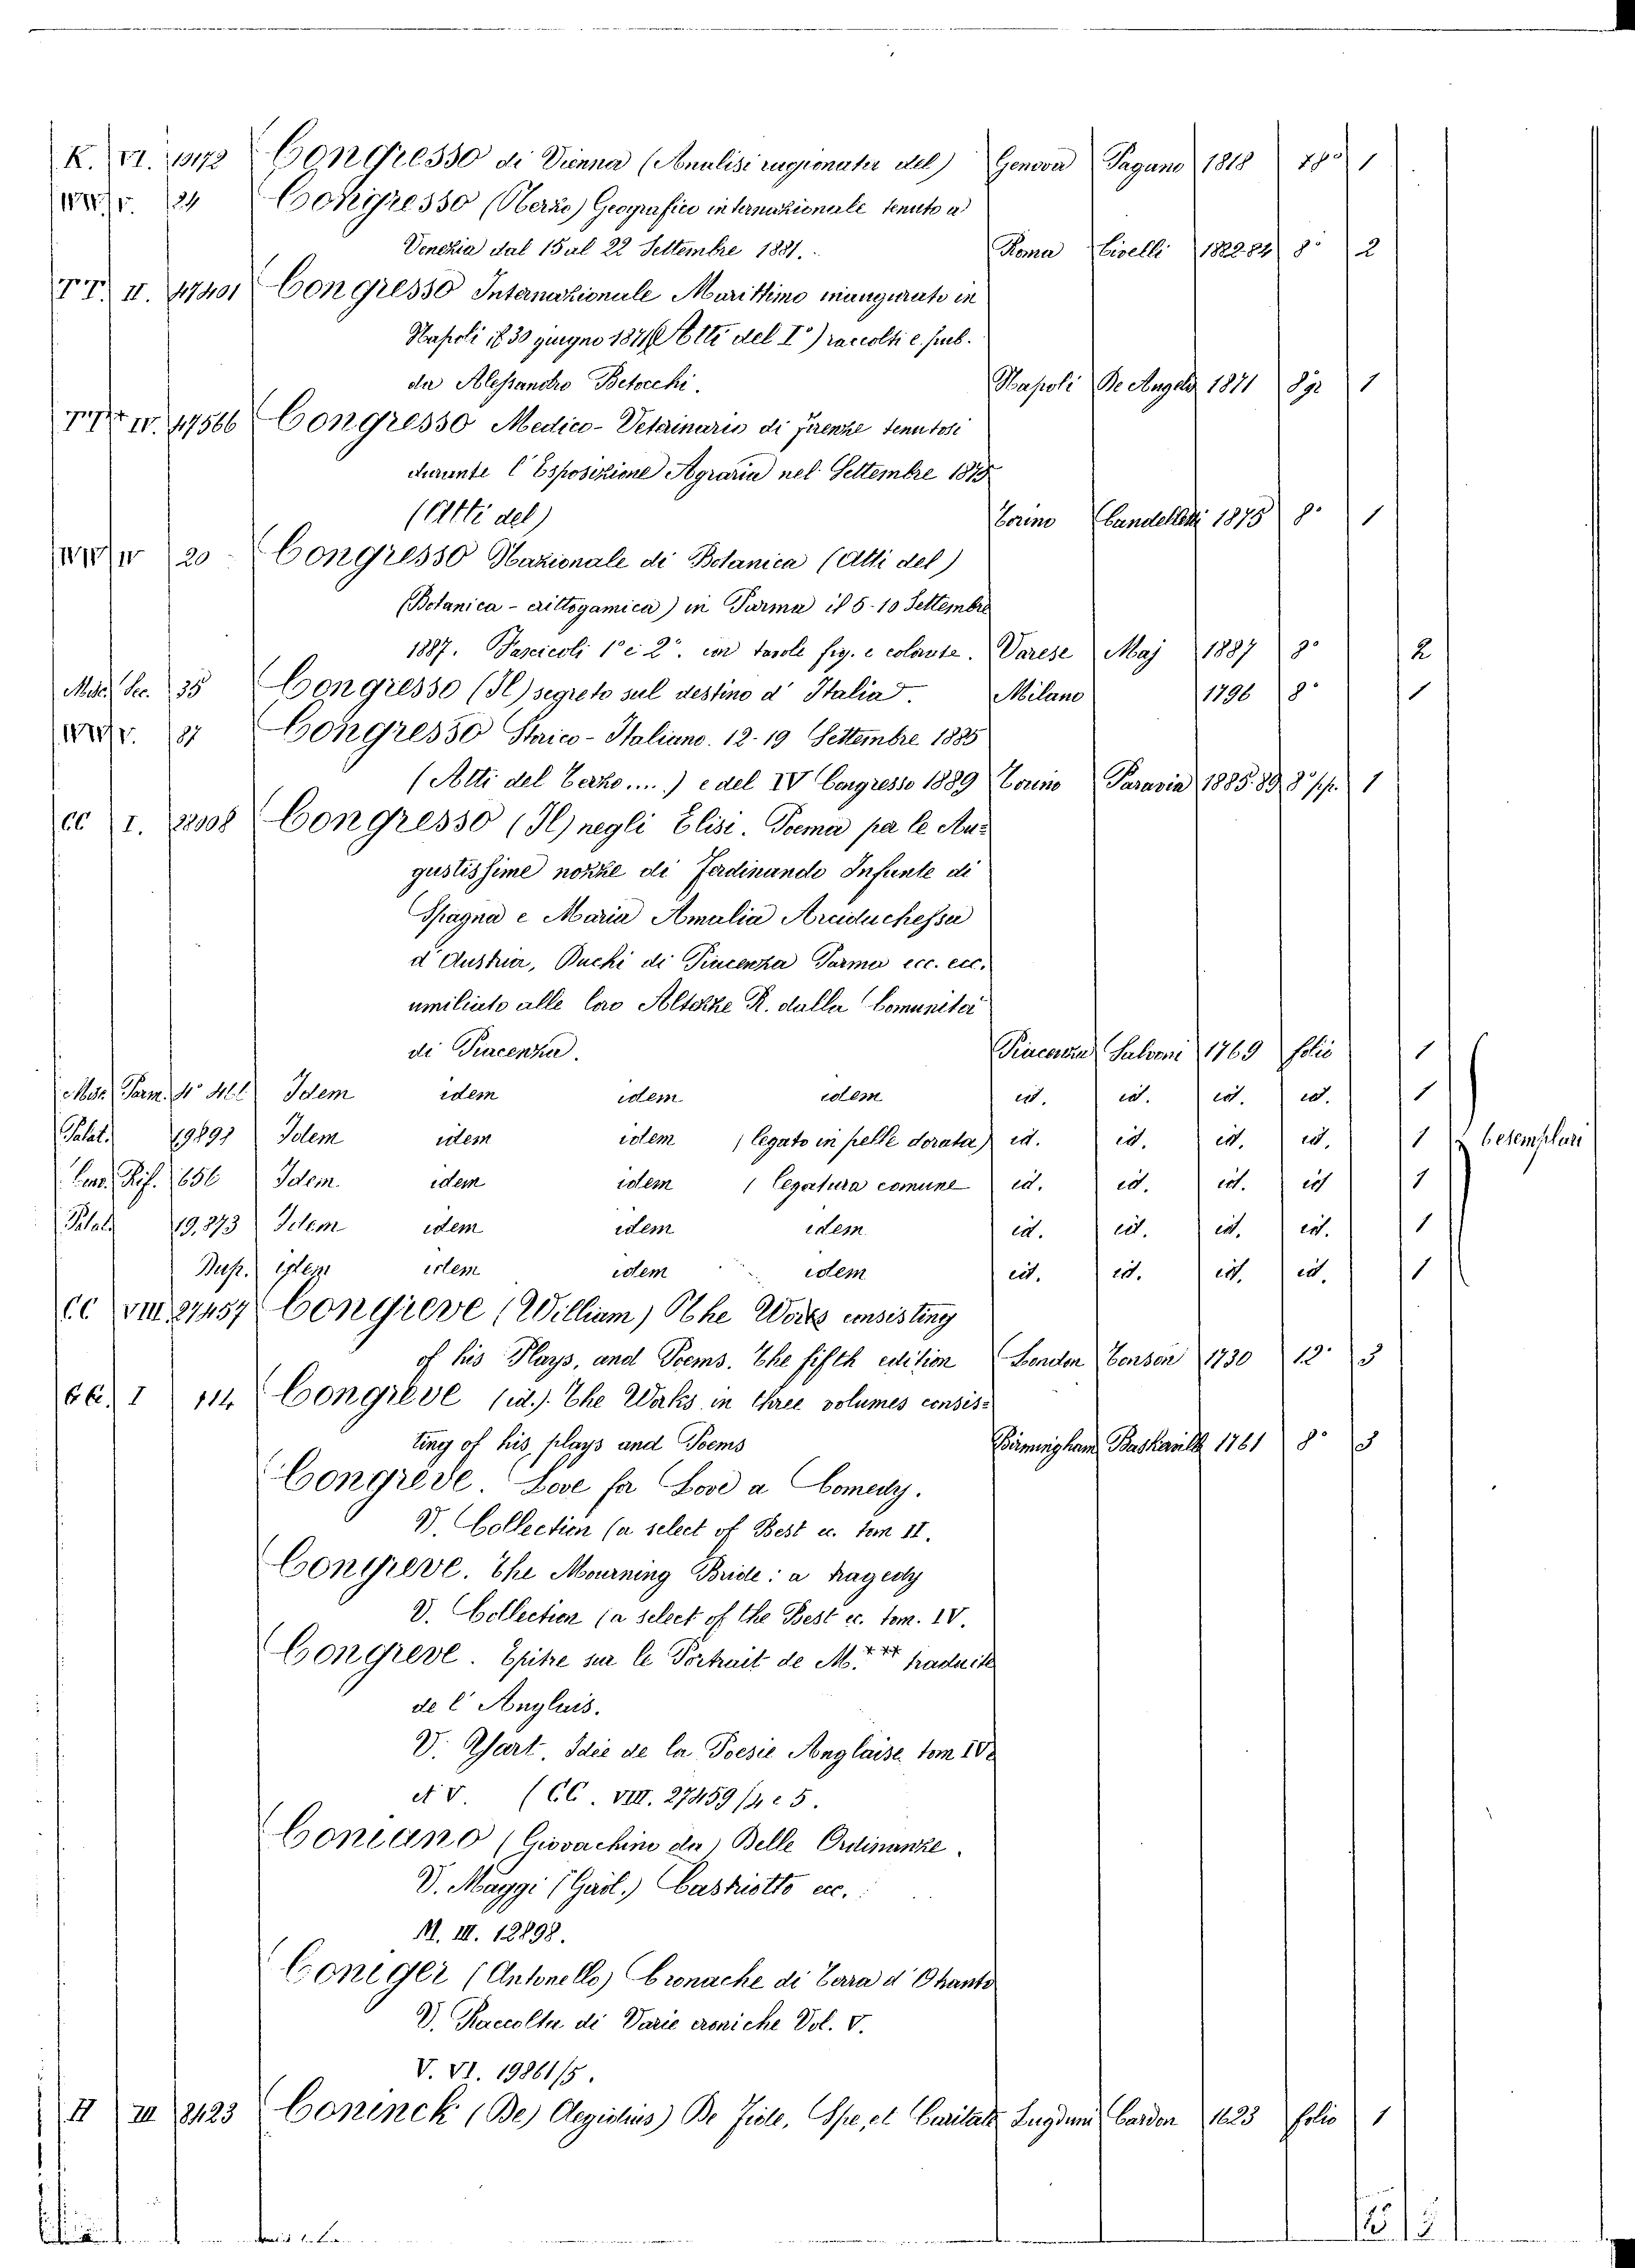 K. VI. 13172 Congresso di Vienna (Analisi ragionata del) Genova Pagano 1818 1
V. 24 Congresso (Terzo) Geografico internazionale tenuto a
Venezia dal 15 al 22 Settembre 1881. Roma Civelli 1882 84 8° 2
TT. II. 47401 Congresso Internazionale Marittimo inaugurato in
Napoli il 30 giugno 1871 (Atti del I°) raccolti e pub.
da Alessandro Betocchi. Napoli De Angelis 1871 8 gr 1
IV. 47566 Congresso Medico-Veterinario di Firenze tenutosi
durante l'Esposizione Agraria nel Settembre 1875
(Atti del) Torino Candeletti 1875 8° 1
IV 20 Congresso Nazionale di Botanica (Atti del)
(Botanica-crittogamica) in Parma il 5-10 Settembre
1887. Fascicoli 1° e 2°. con tavole fig. e colorate. Varese Maj 1887 8° 2
Misc. Sec. 35 Congresso (Il) segreto sul destino d'Italia. Milano 1796 8° 1
V. 87 Congresso Storico-Italiano. 12-19 Settembre 1885
(Atti del Terzo....) e del IV Congresso 1889 Torino Paravia 1885.89 8° 1
CC I. 22008 Congresso (Il) negli Elisi. Poema per le Au=
gustissime nozze di Ferdinando Infante di
Spagna e Maria Amalia Arciduchessa
d'Austria, Duchi di Piacenza Parma ecc. ecc.
umiliato alle loro Altezze R. dalla Comunità
di Piacenza. Piacenza Salvoni 1769 folio 1
Misc. Parm. 4° Idem idem idem idem id. id. id. id. 1
Palat. 19892 Idem idem idem (legato in pelle dorata) id. id. id. id. 1 6 esemplari
Rif. 656 Idem idem idem (legatura comune id. id. id. id 1
Palat. 19.873 Idem idem idem idem id. id. id. id. 1
Dup. idem idem idem idem id. id. id. id. 1
CC VIII 27457 Congreve (William) The Works consisting
of his Plays, and Poems. The fifth edition London Tonson 1730 12° 3
I 114 Congreve (id.) The Works in three volumes consis=
ting of his plays and Poems Birmingham Baskerville 1761 8° 3
Congreve. Love for Love a Comedy.
V. Collection (a select of Best ec. tom II.
Congreve. The Mourning Bride: a tragedy
V. Collection (a select of the Best ec. tom. IV.
Congreve. Epitre sur le Portrait de M.*** traduite
de l'Anglais.
V. Yart. Idée de la Poesie Anglaise tom IV
et V. (CC. VIII. 27459/4 e 5.
Coniano (Giovachino da) Belle Ordinanze.
V. Maggi (Girol.) Castriotto ec.
M. III. 12898.
Coniger (Antonello) Cronache di Terra d'Otranto
V. Raccolta di Varie croniche Vol. V.
V. VI. 19861/5.
H III 8423 Coninck (De) Aegidius) De Fide, Spe, et Caritate Lugduni Cardon 1623 folio 1